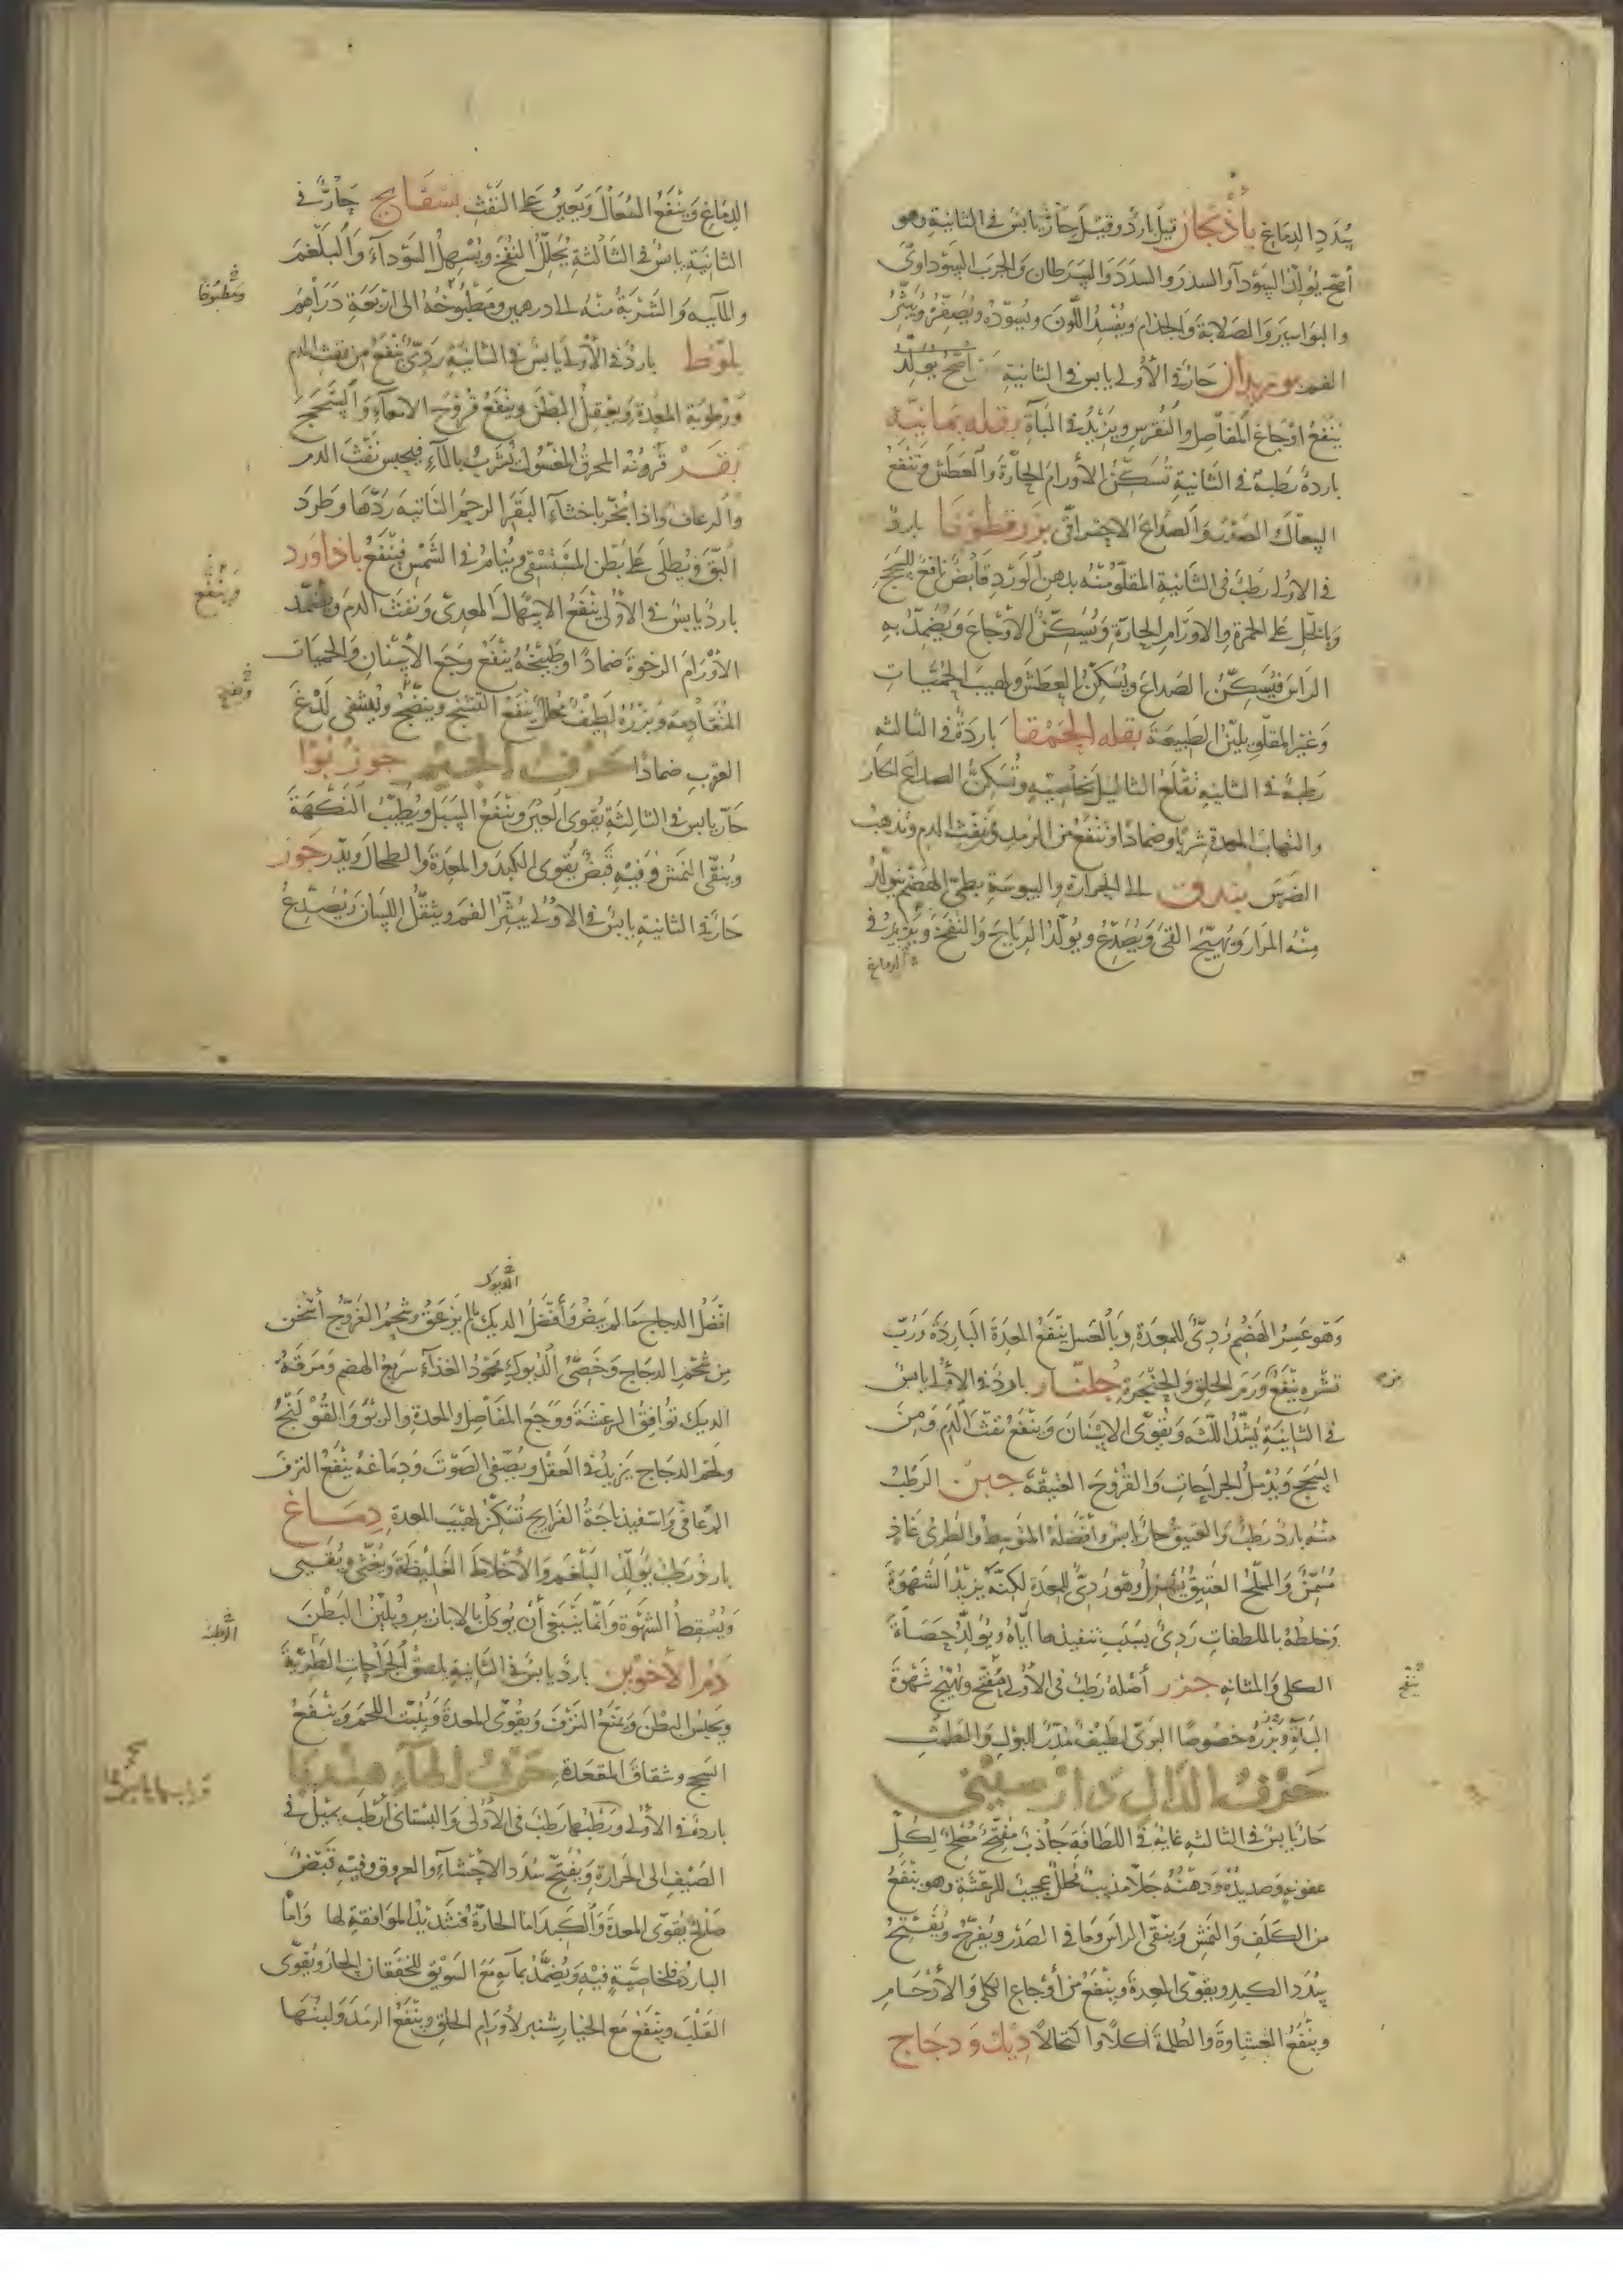 سدد الدماغ باذنجان قيل بارد وقيل حار يابس في الثانية وهو
أصح يولد السوداء والسدد والسرطان والجرب السوداوى
والبواسير والصلابة والجذام ويفسد اللون ويسوده ويصفره ويبثر
الفم بوزيدان حار في الأولى يابس في الثانية
ينفع اوجاع المفاصل والنقرس ويزيد في الباة بقله يمانيه
باردة رطبة في الثانية تسكن الأورام الحارة والعطش وتنفع
السعال الصدر والصداع الاحتراقى بزرقطونا بارد
في الاولى رطب في الثانية المقلو منه بدهن الورد قابض نافع للسحج
وبالخل على الحمرة والاورام الحارة ويسكن الاوجاع ويضمد به
الراس فيسكن الصداع ويسكن العطش ولهيب الحميات
وغير المقلو يلين الطبيعة بقله الحمقا باردة في الثالثه
رطبة في الثانيه تقلع الثاليل بخاصيته وتسكن الصداع الحار
والتهاب المعدة شربا وضمادا وتنفع من الرمد ونفث الدم وتذهب
الضرس بندق الى الحرارة واليبوسة بطئ الهضم يتولد
منه المرار ويهيج القئ ويصدع ويولد الرياح والنفخ ويزيد في
الدماغ
الدماغ وينفع السعال ويعين على النفث بسفايج حار في
الثانية يابس في الثالثة يحلل النفخ ويسهل السوداء والبلغم
والمآييه والشربة منه الى درهمين ومطبوخه الى اربعة دراهم
ومطبوخا
بلوط بارد في الأولى يابس في الثانية ردئ ينفع من نفث الدم
ورطوبة المعدة ويعقل البطن وينفع قروح الامعاء والسحج
بقر قرونه المحرق المغسول يشرب بالماء فيحبس نفث الدم
والرعاف واذا بخر باخثاء البقر الرحم الناتيه ردها وطرد
البق ويطلى على بطن المستسقى وينام في الشمس فينفع باذاورد
وينفع
بارد يابس في الأولى ينفع الاسهال المعدى ونفث الدم ويضمد
الأورام الرخوة ضمادا وطبيخه ينفع وجع الأسنان والحميات
المتقادمة وبزره لطيف محلل ينفع التشنج وينضج ويشفى لدغ
العقرب ضمادا حرف الجيم جوزبوا
حار يابس في الثالثة يقوى العين وينفع السبل ويطيب النكهة
وينقى النمش وفيه قبض يقوى الكبد والمعدة والطحال ويدر جوز
حار في الثانية يابس في الاولى يبثر الفم ويثقل اللسان ويصدع
وهو عسر الهضم ردئ للمعدة وبالعسل ينفع المعدة الباردة ورب
قشره ينفع ورم الحلق والحنجرة جلنار بارد في الأولى يابس
في الثانية يشد اللثه ويقوى الاسنان وينفع نفث الدم ومن
السحج ويدمل الجراحات والقروح العتيقة جبن الرطب
منه بارد رطب والعتيق حار يابس وأفضله المتوسط والطرى غاذ
مسمن والمملح العتيق يهزل وهو ردئ للمعدة لكنه يزيد الشهوة
وخلطه بالملطفات ردئ بسبب تنفيذها اياه ويولد حصاة
الكلى والمثانه جزر أصله رطب في الاولى مفتح ويهيج شهوة
الباة وبزره خصوصا البرى لطيف مدر للبول والطمث
حرف الدال دارصينى
حار يابس في الثالثه غاية في اللطافة جاذب مفتح مصلح لكل
عفونه وصديد ودهنه جلا مذيب محلل عجيب للرعشة وهو ينفع
من الكلف والنمش وينقى الراس وما في الصدر ويفرح ويفتح
سدد الكبد ويقوى المعدة وينفع من أوجاع الكلى والأرحام
وينفع الغشاوة والظلمة اكلا واكتحالا ديك ودجاج
الديوك
افضل الدجاج ما لم يبض وأفضل الديك ما لم يزعق وشحم الفروج أسخن
من شحم الدجاج وخصى الديوك محمود الغذاء سريع الهضم ومرقة
الديك توافق الرعشة ووجع المفاصل والمعدة والربو والقولنج
ولحم الدجاج يزيد في العقل ويصفى الصوت ودماغه ينفع النزف
الرعافى واسفيذباجة الفراريج تسكن لهيب المعدة دماغ
بارد رطب يولد البلغم والأخلاط الغليظة ويغثى ويقيى
ويسقط الشهوة وانما ينبغى أن يوكل بالابازير ويلين البطن
دم الأخوين بارد يابس في الثانية يلصق الجراحات الطرية
ويحبس البطن ويمنع النزف ويقوى المعدة وينبت اللحم وينفع
السحج وشقاق المقعدة حرف الهاء هندبا
باردة في الأولى ورطبها رطب في الأولى والبستانى أرطب يميل في
الصيف الى الحرارة ويفتح سدد الاحشاء والعروق وفيه قبض
صالح يقوى المعدة والكبد اما الحارة فشديد الموافقة لها واما
الباردة فلخاصية فيه ويضمد بمآئه مع السويق للخفقان الحار ويقوى
القلب وينفع مع الخيارشنبر لأورام الحلق وينفع الرمد ولبنها